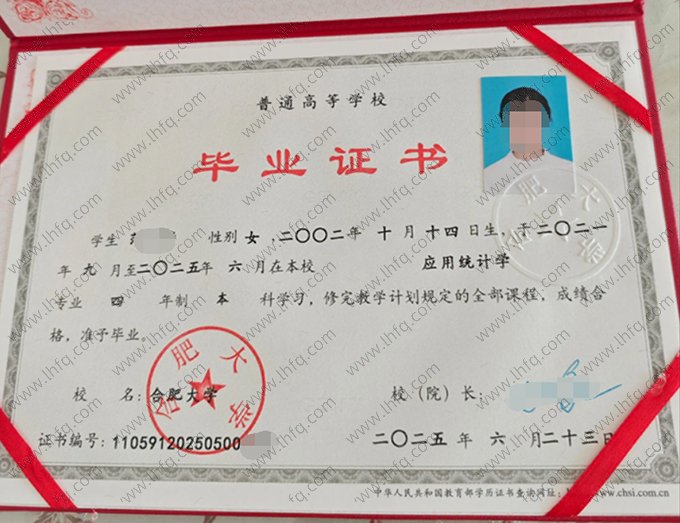 普通高等学校
毕业证书
学生 性别 女 ,二〇〇二年 十 月 十四 日生, 于二〇二一
年 九 月至二〇二五年 六 月在本校 应用统计学
专业 四 年制 本 科学习, 修完教学计划规定的全部课程, 成绩合
格, 准予毕业。
校 名: 合肥大学
校（院）长:
证书编号: 11059120250500
二〇二五 年 六 月二十三日
中华人民共和国教育部学历证书查询网址: www.chsi.com.cn
合肥大学
合肥大学
www.lhfq.com